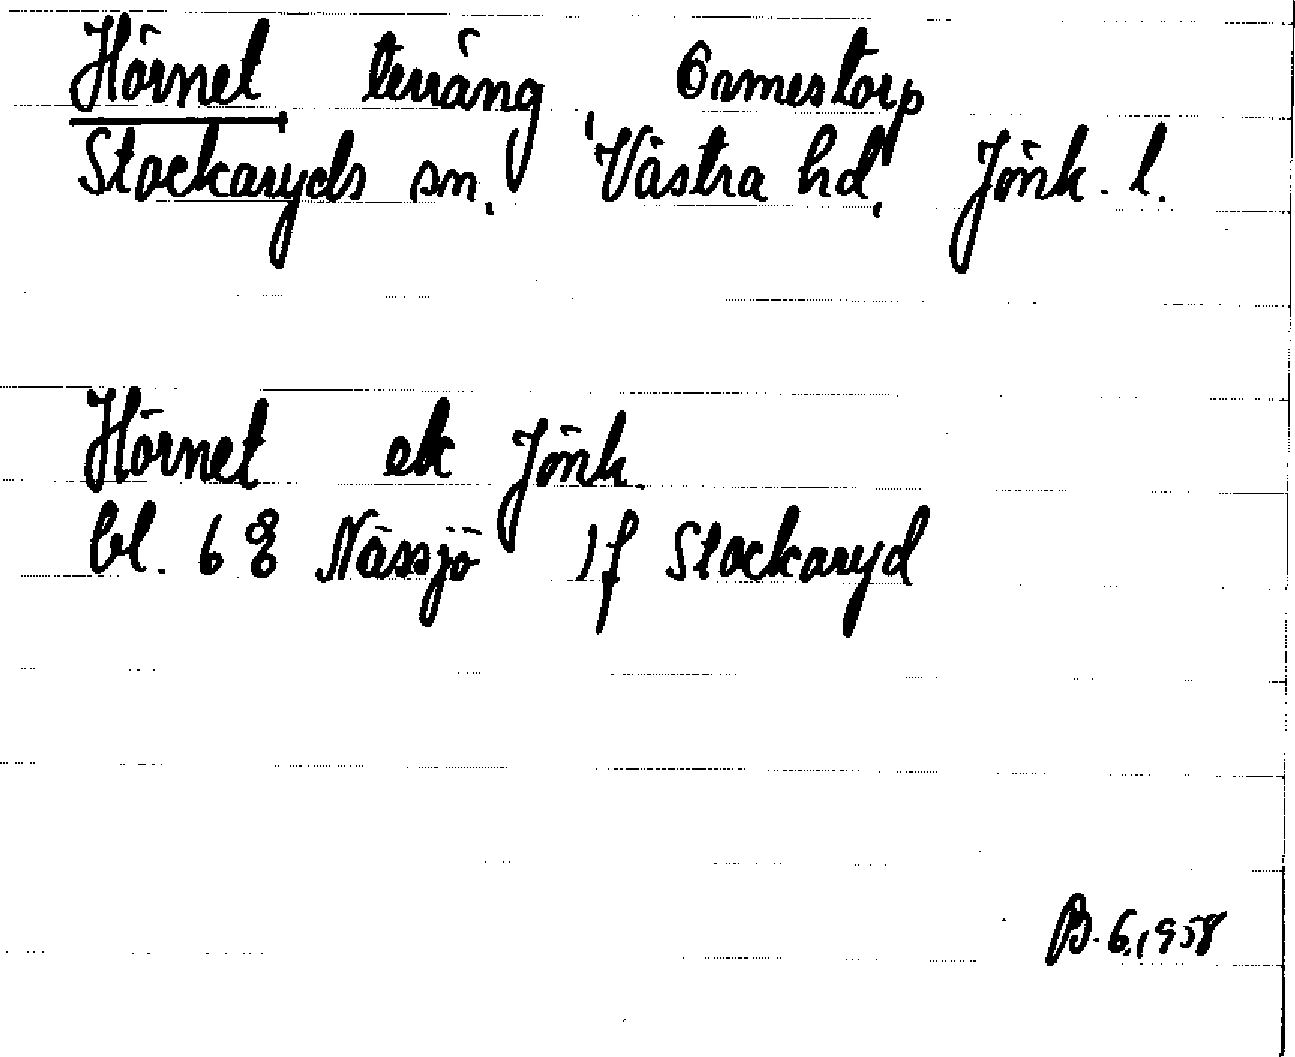 Hörnet terräng Ormestorp
Stockaryds sn. Västra hd. Jönk. l.
Hörnet ek Jönk.
bl. 6 E Nässjö 1f Stockaryd
B. G. 1958